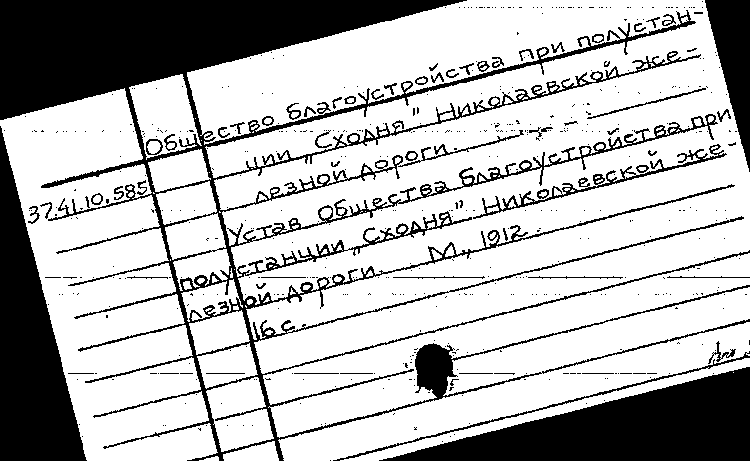 Общество благоустройства при полустан-
ции „Сходня" Николаевской же-
лезной дороги.
37.41.10.585
Устав Общества благоустройства при
полустанции „Сходня" Николаевской же-
лезной дороги. М., 1912.
16 с.